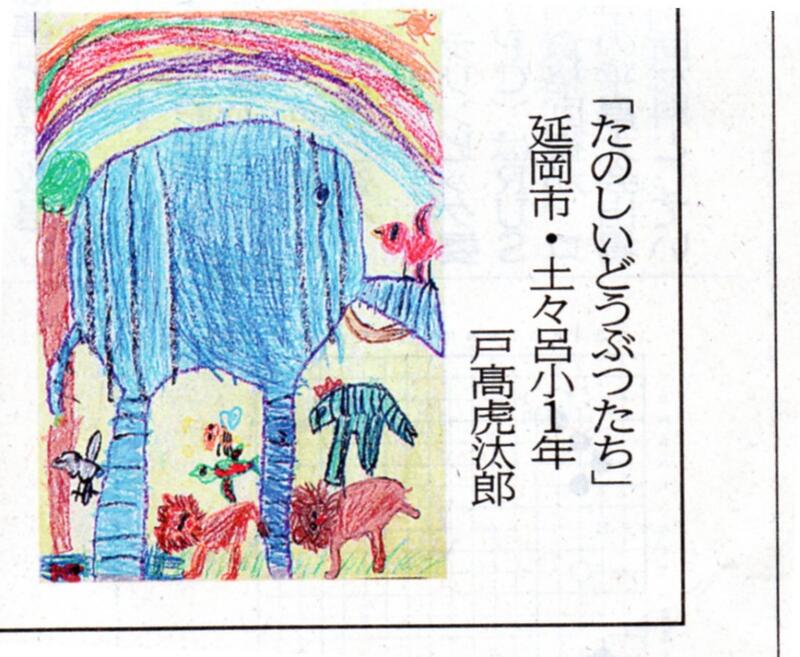 「たのしいどうぶつたち」
延岡市・土々呂小1年
戸髙虎汰郎